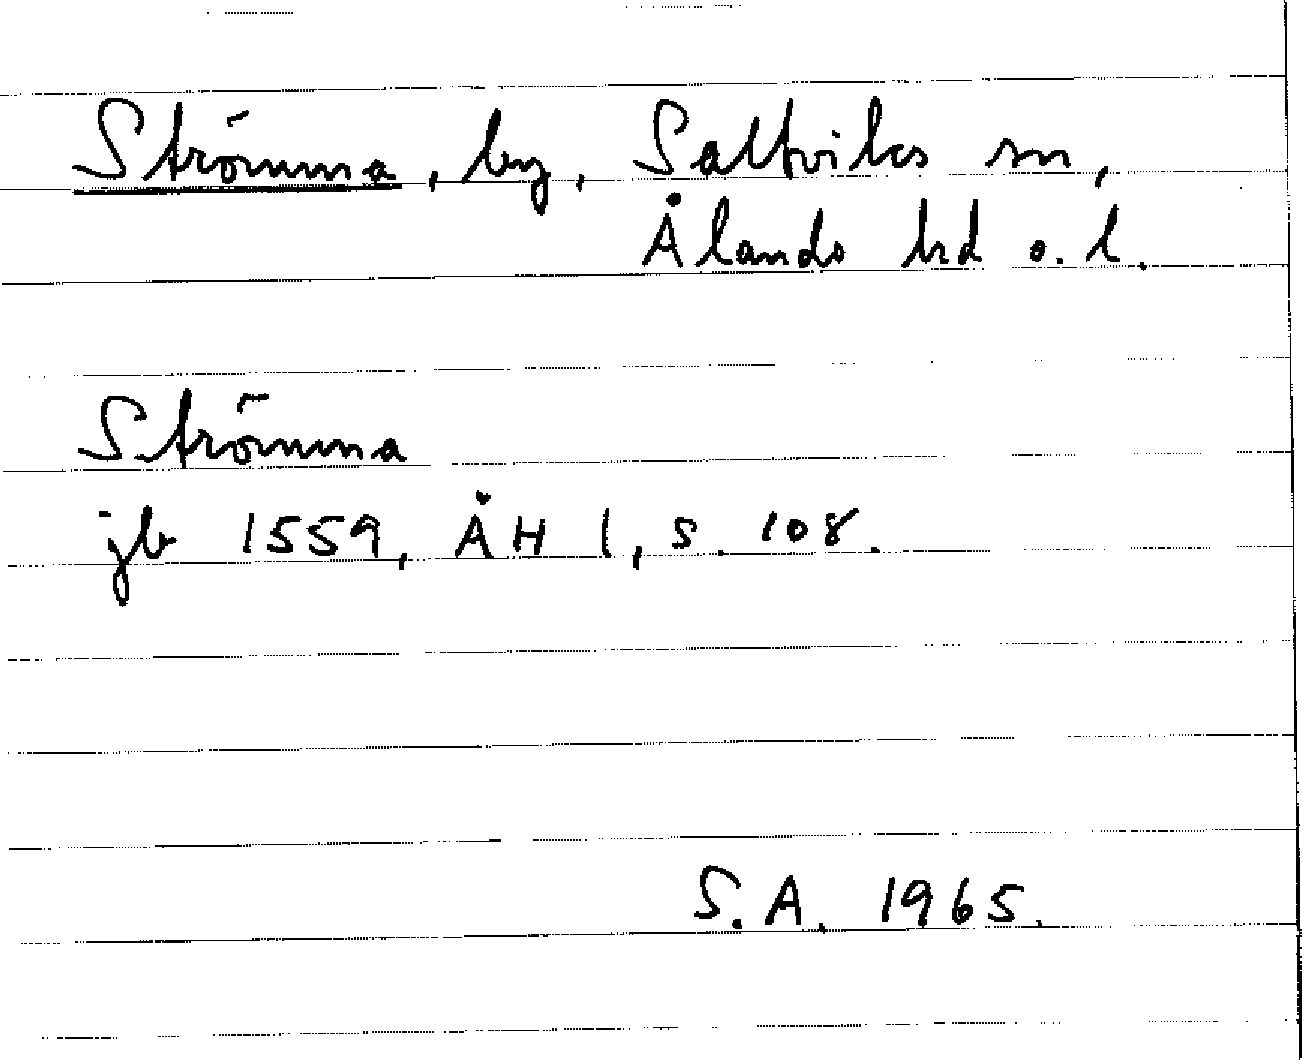 Strömma, by, Saltviks sn,
Ålands hd o. l.
Strömma
jb 1559, ÅH 1, s. 108.
S.A. 1965.